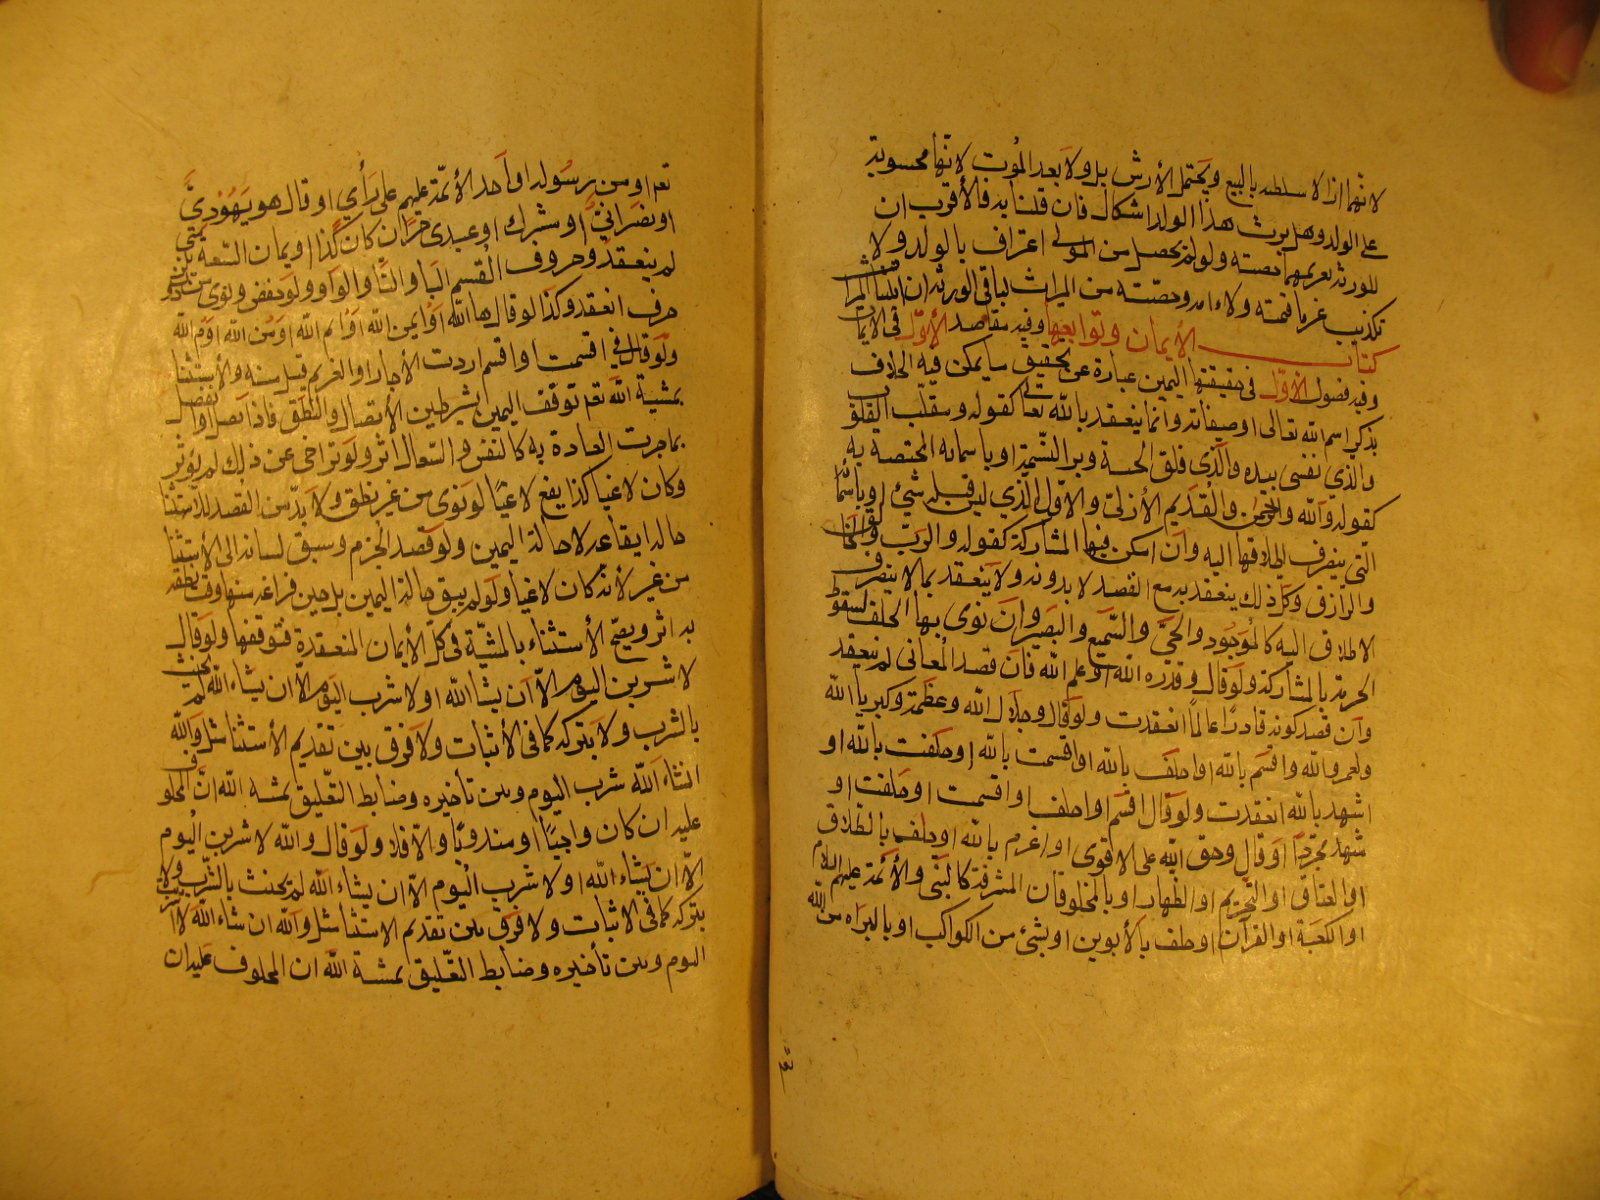 لانهما اذا لا سلطنه بالبيع ويحتمل الأرش بل ولا بعد الموت لانها محسوبة
على الولد وهل يرث هذا الولد اشكال فان قلنا به فالأقرب ان
للورثة تغريمهما حصته ولو لم يحصل من المولى اعتراف بالولد ولا
تكذيب غرما قيمته ولاء امه وحصته من الميراث لباقي الورثة ان
كتاب الأيمان وتوابعها وفيه مقاصد الأول في الايمان
وفيه فصول الأول في حقيقتها اليمين عبارة عن تحقيق ما يمكن فيه الخلاف
بذكر اسم الله تعالى او صفاته وانما ينعقد بالله تعالى كقوله ومقلب القلوب
والذي نفسي بيده والذي فلق الحبة وبرأ النسمة او باسمائه المختصة به
كقوله والله والرحمن والقديم الأزلي والأول الذي ليس قبله شئ او باسمائه
التي ينصرف اطلاقها اليه وان امكن فيها المشاركة كقوله والرب والخالق
والرازق وكل ذلك ينعقد به مع القصد لا بدونه ولا ينعقد بما لا ينصرف
الاطلاق اليه كالموجود والحي والسميع والبصير وان نوى بها الحلف لسقوط
الحرمة بالمشاركة ولو قال وقدرة الله او علم الله فان قصد المعاني لم ينعقد
وان قصد كونه قادرًا عالمًا انعقدت ولو قال وجلال الله وعظمة وكبرياء الله
ولعمر والله واقسم بالله او احلف بالله او اقسمت بالله او حلفت بالله او
اشهد بالله انعقدت ولو قال اقسم او احلف او اقسمت او حلفت او
شهد مجردا او قال وحق الله على الاقوى او اعزم بالله او حلف بالطلاق
او العتاق او التحريم او الظهار او بالمخلوقات المشرفة كالنبي والأئمة عليهم السلام
او الكعبة او القرآن او حلف بالأبوين او بشئ من الكواكب او بالبراءة من الله
تعم او من رسوله او احد الأئمة عليهم على رأي او قال هو يهودي
او نصراني او مشرك او عبدي حر ان كان كذا او يمان البيعة
لم ينعقد وحروف القسم البا والتا والواو ولو خفض ونوى من دون
حرف انعقد وكذا لو قال ها الله او ايمن الله او ايم الله او من الله او م الله
ولو قال في اقسمت او اقسم اردت الأخبار او العزم قبل منه والأستثنا
بمشية الله تعم توقف اليمين بشرطين الأتصال والنطق فاذا اتصل او انفصل
بما جرت العادة به كالنفس والسعال اثر ولو تراخى عن ذلك لم يؤثر
وكان لاغيا كذا يقع لاغيًا لو نوى من غير نطق ولا بد من القصد للاستثنا
حالة ايقاعه لا حالة اليمين ولو قصد الجزم وسبق لسانه الى الأستثنا
من غير لأنه كان لاغيا ولو لم ينو حالة اليمين بل حين فراغه منها وقت نطقه
به اثر ويصح الأستثناء بالمشية في كل الأيمان المنعقدة فتوقفها ولو قال
لاشربن اليوم الا ان يشا الله او لا شرب اليوم الا ان يشاء الله لم يحنث
بالشرب ولا بتركه كما في الأثبات ولا فرق بين تقديم الأستثنا مثل والله
انشاء الله شرب اليوم وبين تأخيره وضابط التعليق بمشية الله ان المحلوف
عليه ان كان واجبًا او مندوبًا والا فلا ولو قال والله لاشربن اليوم
الا ان يشاء الله او لا شرب اليوم الا ان يشاء الله لم يحنث بالشرب ولا
بتركه كما في الاثبات ولا فرق بين تقديم الاستثنا مثل والله ان شاء الله لاشربن
اليوم وبين تأخيره وضابط التعليق بمشية الله ان المحلوف عليه ان